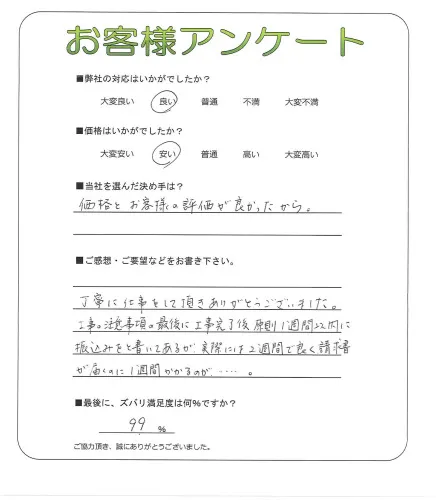 お客様アンケート
■弊社の対応はいかがでしたか?
大変良い 良い 普通 不満 大変不満
■価格はいかがでしたか?
大変安い 安い 普通 高い 大変高い
■当社を選んだ決め手は?
価格とお客様の評価が良かったから。
■ご感想・ご要望などをお書き下さい。
丁寧に仕事をして頂きありがとうございました。
工事の注意事項の最後に工事完了後原則1週間以内に
振込みをと書いてあるが実際には2週間で良く請求書
が届くのに1週間かかるのが……。
■最後に、ズバリ満足度は何%ですか?
99 %
ご協力頂き、誠にありがとうございました。